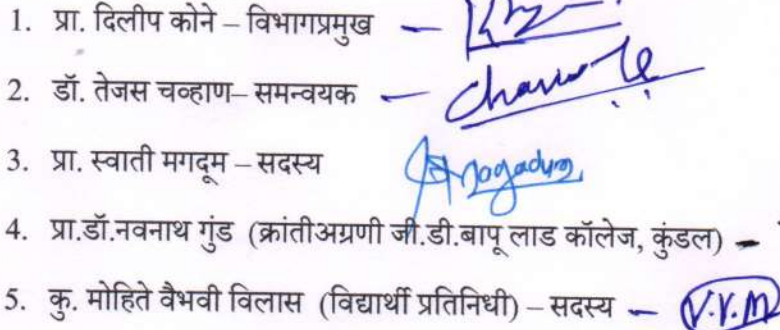 1. प्रा. दिलीप कोने – विभागप्रमुख –
2. डॉ. तेजस चव्हाण– समन्वयक –
3. प्रा. स्वाती मगदूम – सदस्य Magadum
4. प्रा.डॉ.नवनाथ गुंड (क्रांतीअग्रणी जी.डी.बापू लाड कॉलेज, कुंडल) –
5. कु. मोहिते वैभवी विलास (विद्यार्थी प्रतिनिधी) – सदस्य – V.V.M